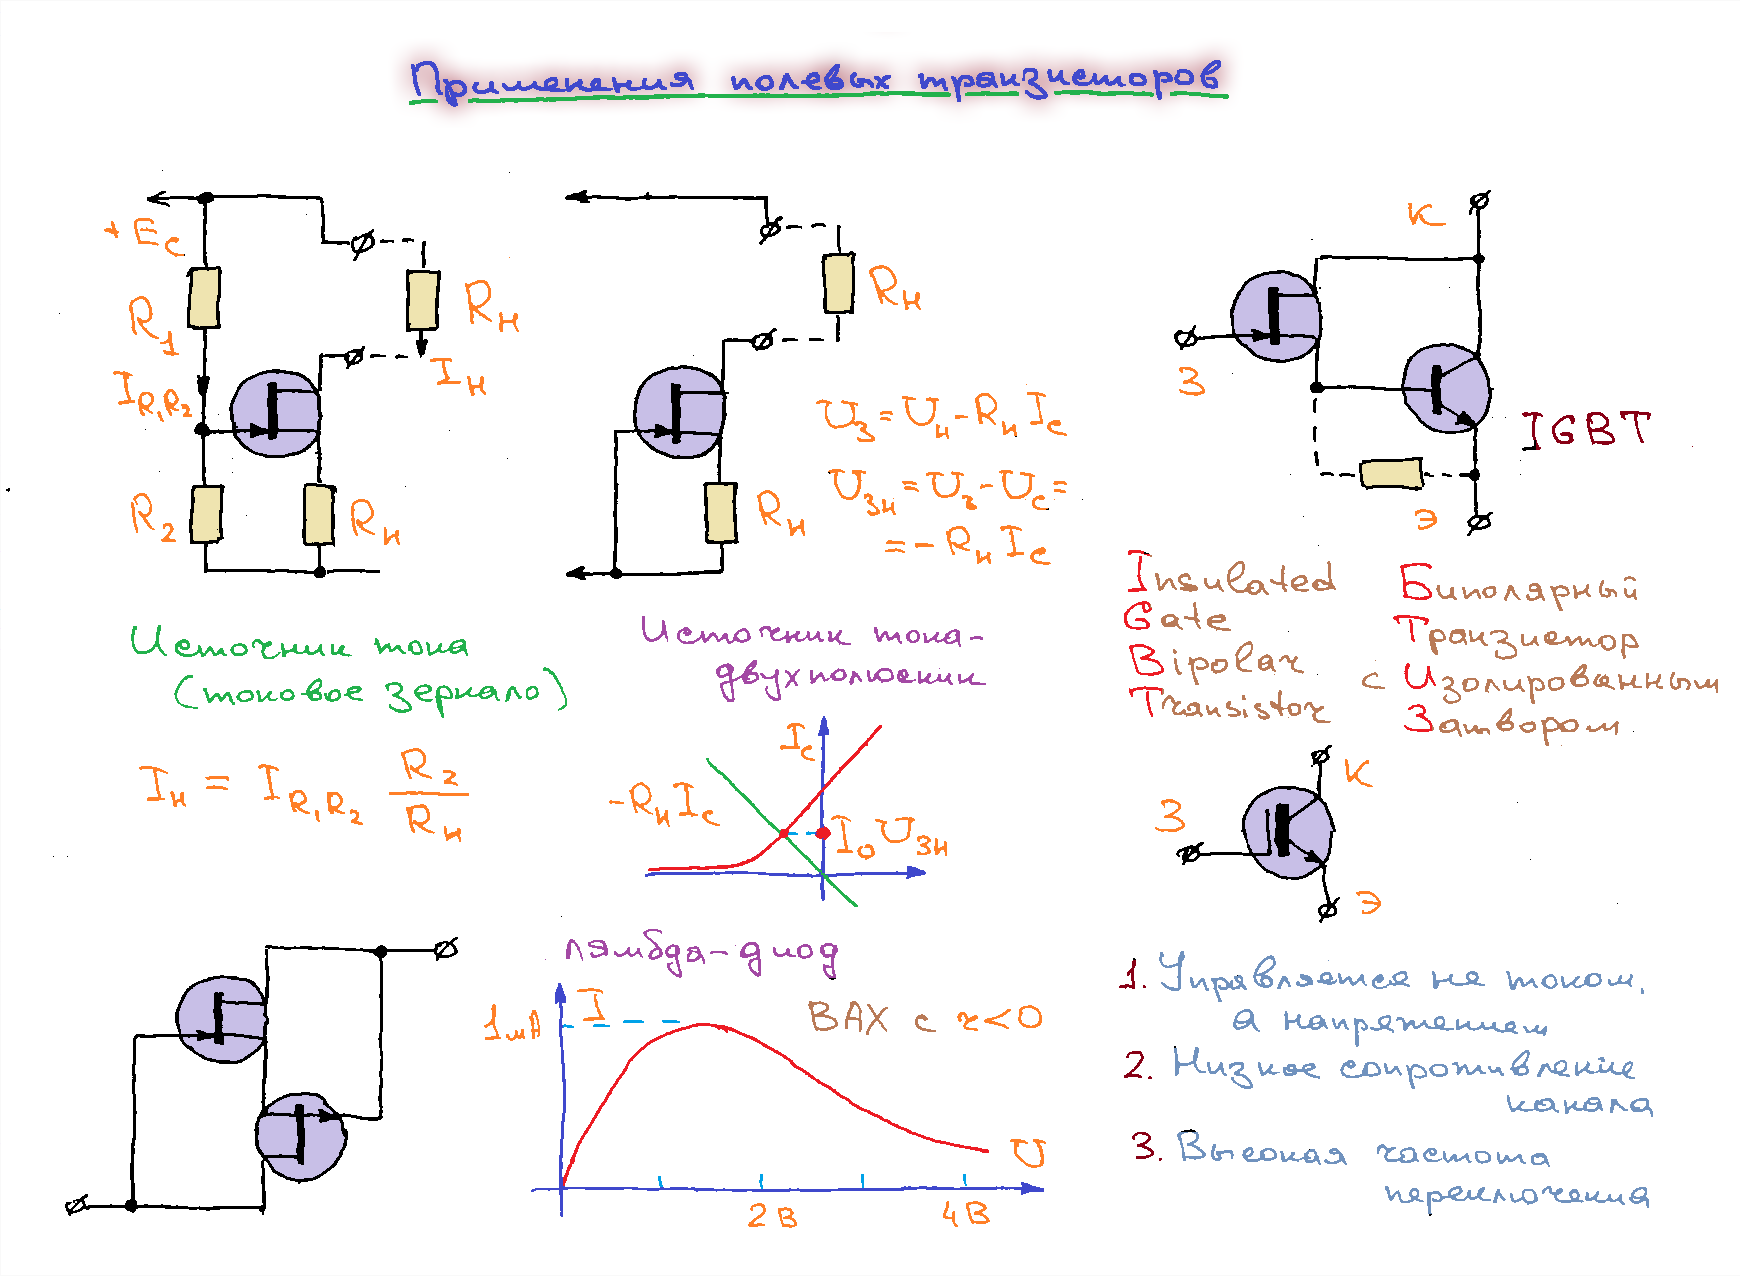 Применения полевых транзисторов
+Eс
R₁
I_R₁R₂
R₂
Rн
Iн
Rи
Источник тока
(токовое зеркало)
Iн = I_R₁R₂ R₂/Rи
Rн
Rи
Uз = Uи - RиIс
Uзи = Uз - Uс =
= - RиIс
Источник тока-
двухполюсник
Iс
-RиIс
I₀
Uзи
К
З
IGBT
Э
Insulated
Gate
Bipolar
Transistor
Биполярный
Транзистор
с Изолированным
Затвором
К
З
Э
лямбда-диод
I
1мА
ВАХ с r<0
U
2В
4В
1. Управляется не током,
а напряжением
2. Низкое сопротивление
канала
3. Высокая частота
переключения